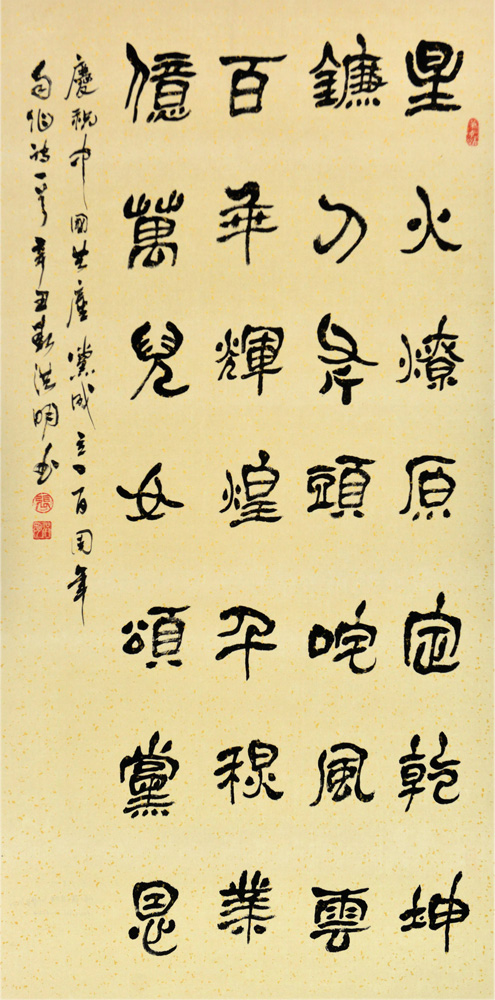 星火燎原定乾坤
鐮刀斧頭咤風雲
百年輝煌千秋業
億萬兒女頌黨恩
慶祝中國共產黨成立一百周年
自作詩一首辛丑洪明書